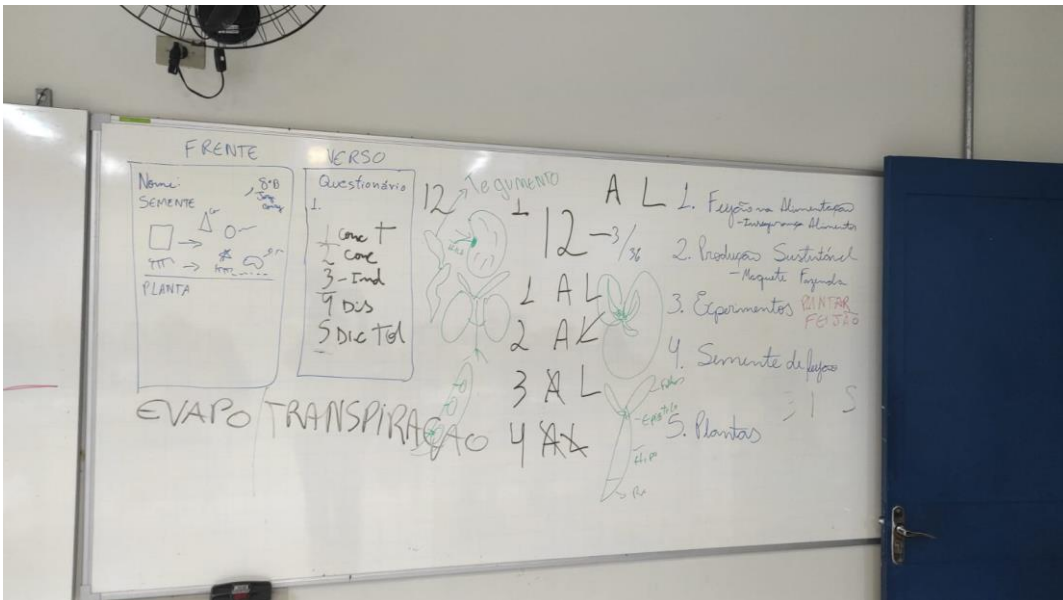 FRENTE
Nome:
8ºB
SEMENTE
PLANTA
VERSO
Questionário
1.
1 Conc T
2 Conc
3 - Ind
4 Dis
5 Disc Tol
EVAPO TRANSPIRAÇÃO
12
Tegumento
1
A L
12 - 3/36
1 A L
2 A L
3 A L
4 A A
Hipo
1. Feijão na Alimentação
- Insegurança Alimentar
2. Produção Sustentável
- Maquete Fazenda
3. Experimentos PINTAR
FEIJÃO
4. Semente de feijão
3 1 S
5. Plantas